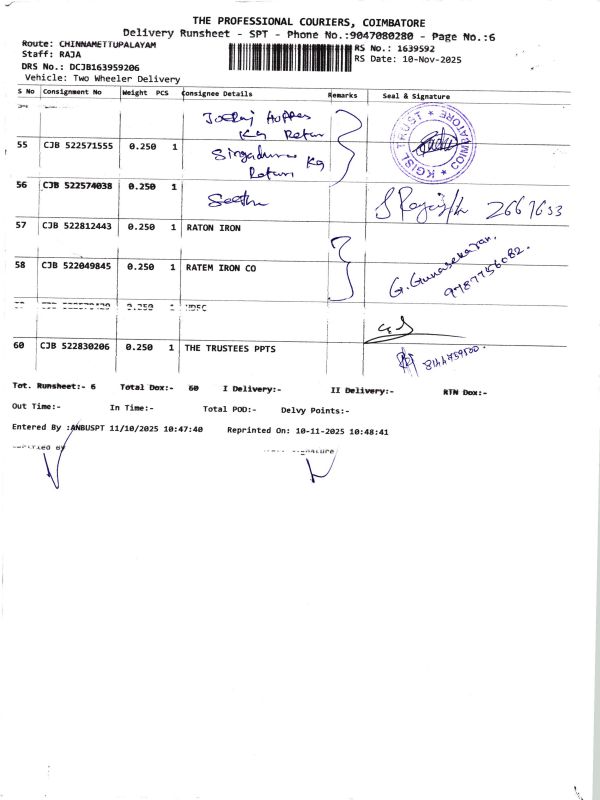 THE PROFESSIONAL COURIERS, COIMBATORE
Delivery Runsheet - SPT - Phone No.:9047080280 - Page No.:6
Route: CHINNAMETTUPALAYAM
RS No.: 1639592
Staff: RAJA
RS Date: 10-Nov-2025
DRS No.: DCJB163959206
Vehicle: Two Wheeler Delivery
S No Consignment No Weight PCS Consignee Details Remarks Seal & Signature
Kg Return
55 CJB 522571555 0.250 1
Kg
Return
KGISL TRUST * COIMBATORE *
56 CJB 522574038 0.250 1
Seetha
2667633
57 CJB 522812443 0.250 1 RATON IRON
58 CJB 522049845 0.250 1 RATEM IRON CO
G. Gunasekaran.
9787756082.
0.250 1 HDFC
60 CJB 522830206 0.250 1 THE TRUSTEES PPTS
Tot. Runsheet:- 6 Total Dox:- 60 I Delivery:- II Delivery:- RTN Dox:-
Out Time:- In Time:- Total POD:- Delvy Points:-
Entered By :ANBUSPT 11/10/2025 10:47:40 Reprinted On: 10-11-2025 10:48:41